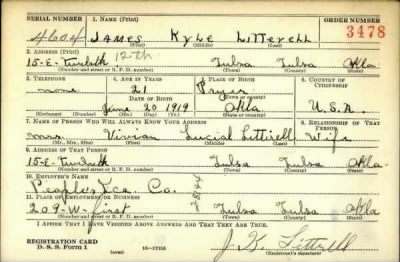 SERIAL NUMBER 1. NAME (Print) ORDER NUMBER
4604 JAMES Kyle Litterell 3478
(First) (Middle) (Last)
2. ADDRESS (Print) 12th
15-E-Twelveth Tulsa Tulsa Okla
(Number and street or R. F. D. number) (Town) (County) (State)
3. TELEPHONE 4. AGE IN YEARS 5. PLACE OF BIRTH 6. COUNTRY OF CITIZENSHIP
none 21 Pryor
DATE OF BIRTH (Town or county)
June 20 1919 Okla U.S.A.
(Exchange) (No.) (Mo.) (Day) (Yr.) (State or country)
7. NAME OF PERSON WHO WILL ALWAYS KNOW YOUR ADDRESS 8. RELATIONSHIP OF THAT PERSON
Mrs. Vivian Lucial Littrell Wife
(Mr., Mrs., Miss) (First) (Middle) (Last)
9. ADDRESS OF THAT PERSON
15-E-Twelveth Tulsa Tulsa Okla
(Number and street or R. F. D. number) (Town) (County) (State)
10. EMPLOYER'S NAME
Peoples Ice. Co.
11. PLACE OF EMPLOYMENT OR BUSINESS
209-W-first Tulsa Tulsa Okla
(Number and street or R. F. D. number) (Town) (County) (State)
I AFFIRM THAT I HAVE VERIFIED ABOVE ANSWERS AND THAT THEY ARE TRUE.
REGISTRATION CARD
D. S. S. Form 1 (over) 16—17105 J. K. Littrell
(Registrant's signature)